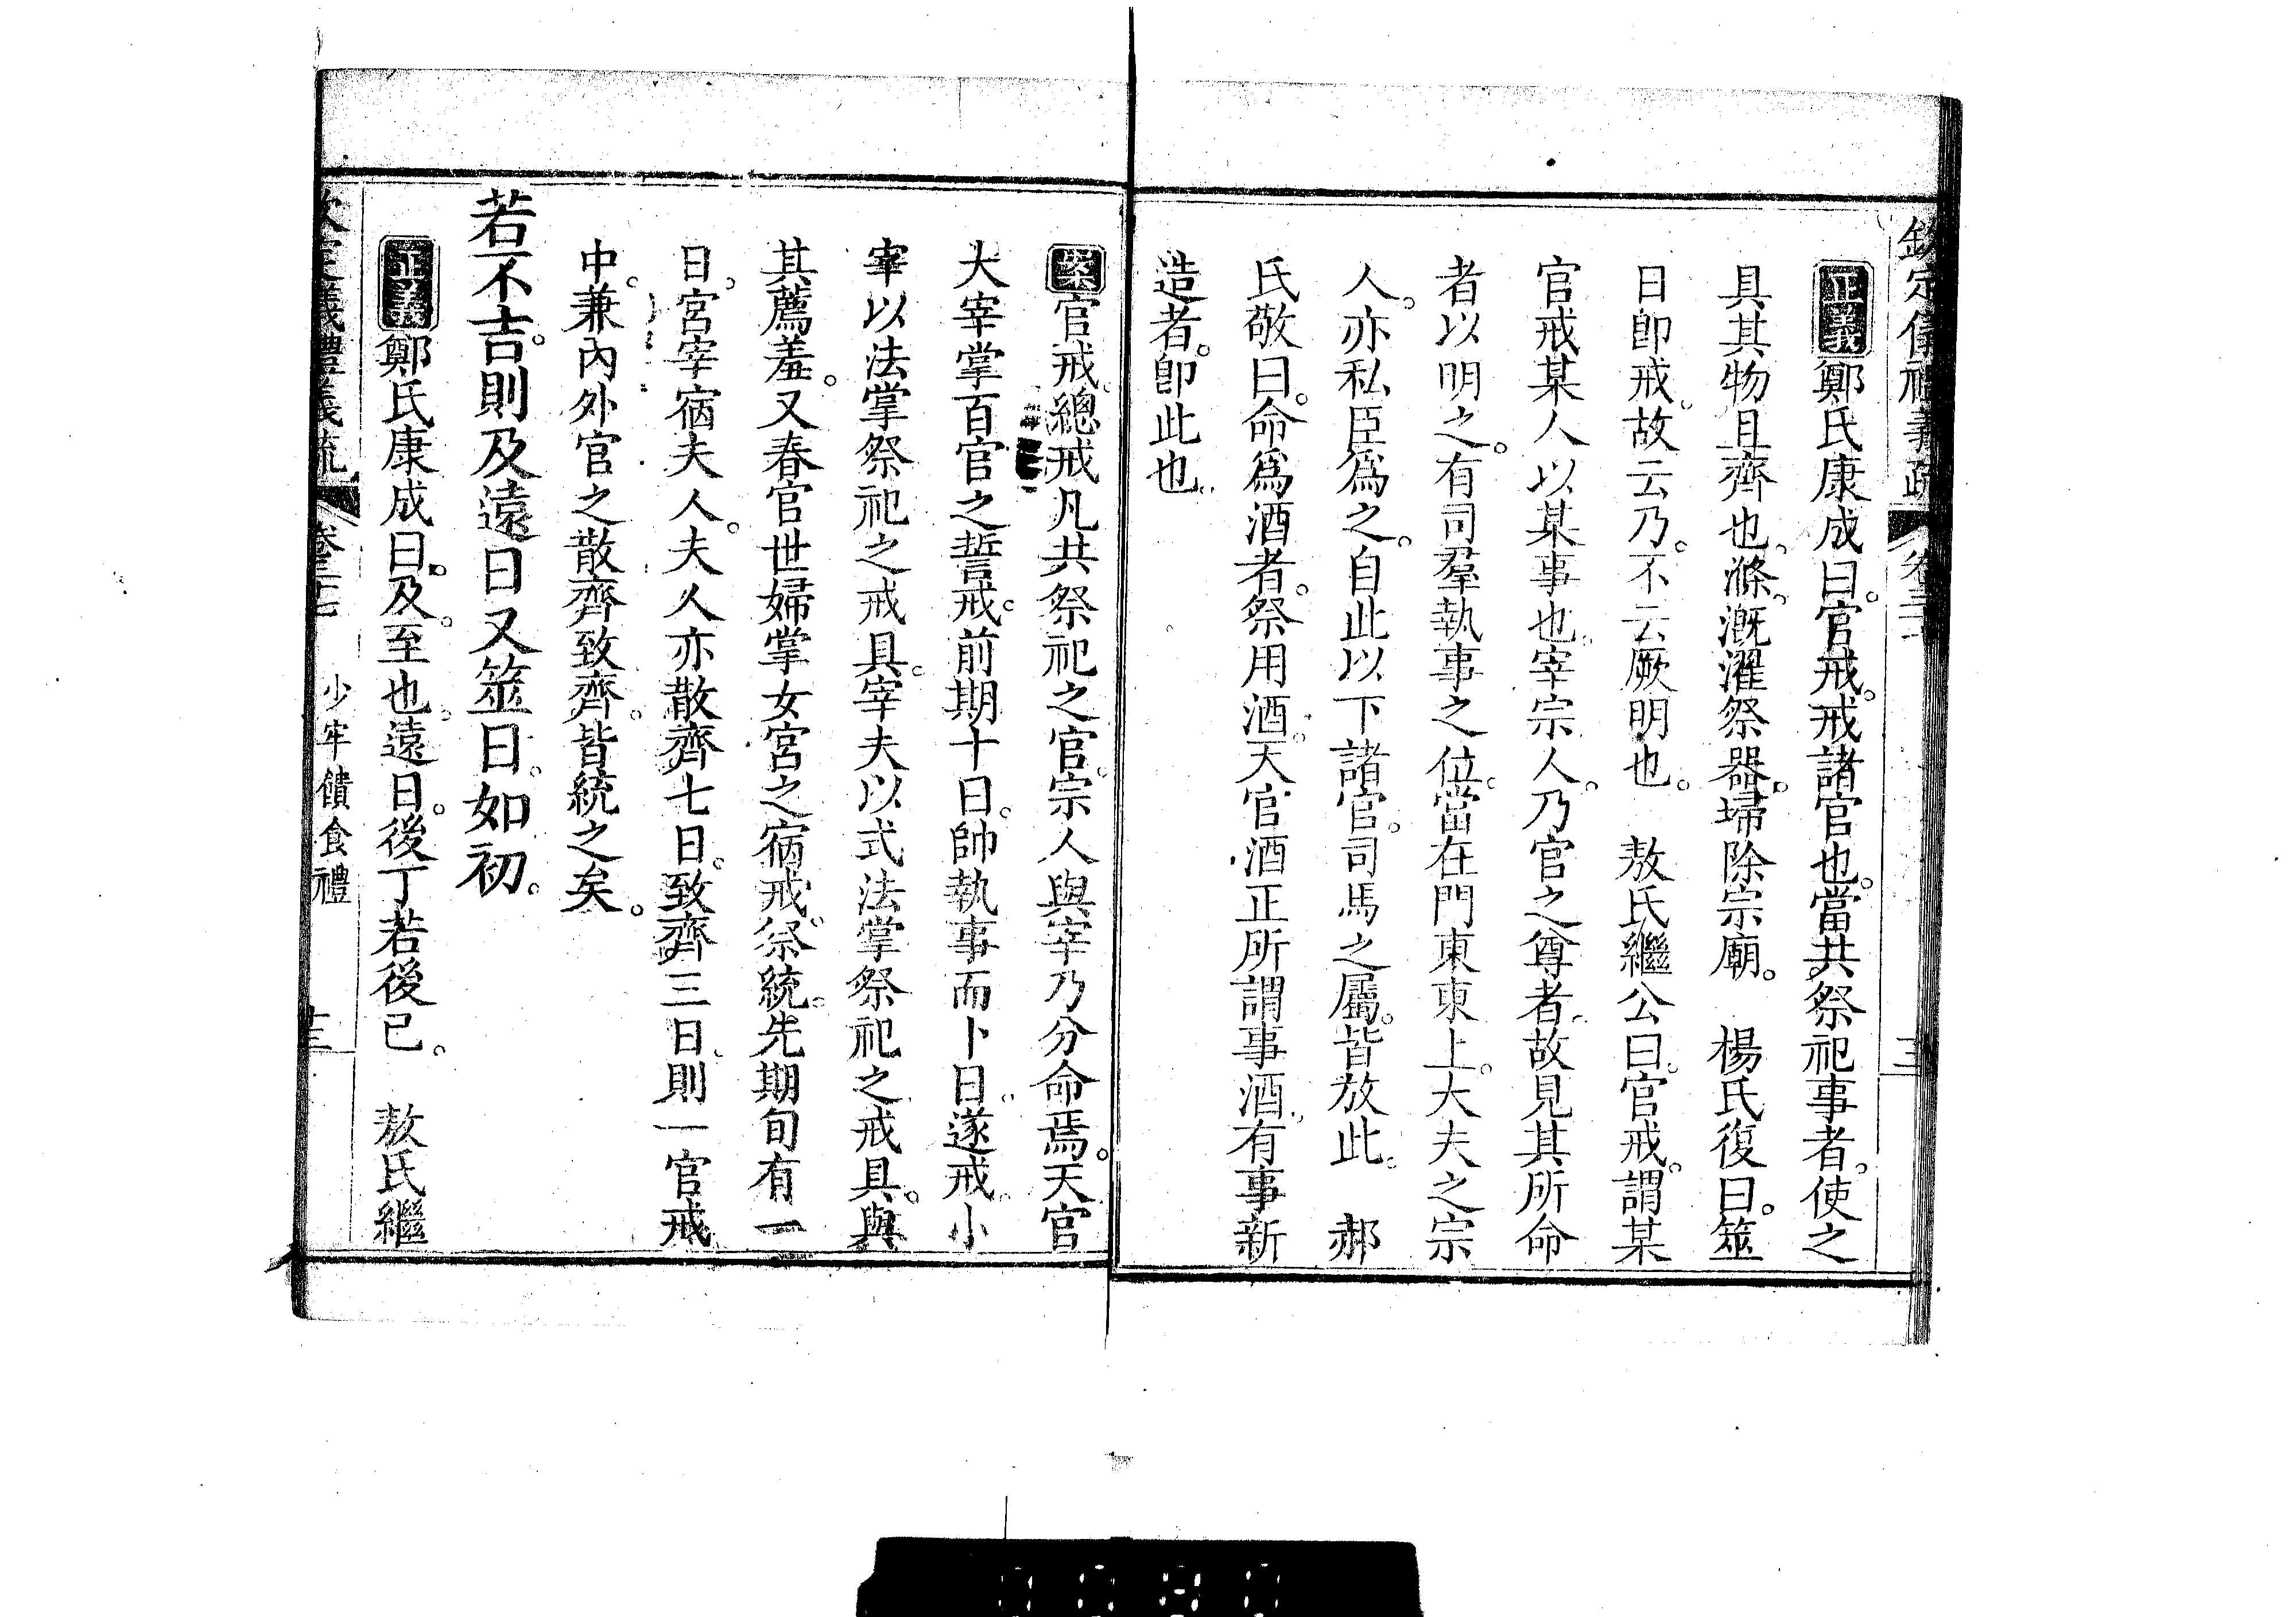 欽定儀禮義疏 卷三十
正義鄭氏康成曰。官戒。戒諸官也。當共祭祀事者。使之
具其物且齊也。滌。漑濯祭器。埽除宗廟。 楊氏復曰。筮
日卽戒。故云乃。不云厥明也。 敖氏繼公曰。官戒。謂某
官戒某人以某事也。宰宗人。乃官之尊者。故見其所命
者以明之。有司羣執事之位。當在門東東上。大夫之宗
人。亦私臣爲之。自此以下諸官。司馬之屬。皆放此。 郝
氏敬曰。命爲酒者。祭用酒。天官酒正所謂事酒。有事新
造者。卽此也。
案官戒。總戒凡共祭祀之官。宗人與宰乃分命焉。天官
大宰掌百官之誓戒。前期十日。帥執事而卜日。遂戒。小
宰以法掌祭祀之戒具。宰夫以式法掌祭祀之戒具。與
其薦羞。又春官世婦掌女宮之宿戒。祭統。先期旬有一
日。宮宰宿夫人。夫人亦散齊七日。致齊三日。則一官戒
中。兼內外官之散齊致齊。皆統之矣。
若不吉。則及遠日又筮日。如初。
正義鄭氏康成曰。及。至也。遠日。後丁若後己。 敖氏繼
欽定儀禮義疏 卷三十七 少牢饋食禮 十三